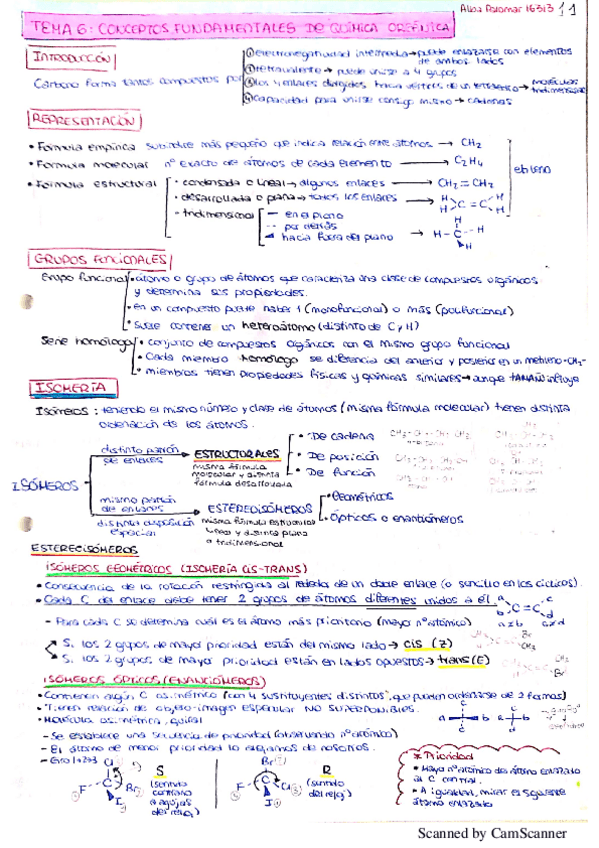 Alba Palomar 16313 11
TEMA 6: CONCEPTOS FUNDAMENTALES DE QUÍMICA ORGÁNICA
INTRODUCCIÓN
Carbono forma tantos compuestos por
① electronegatividad intermedia → puede enlazarse con elementos de ambos lados
② tetravalente → puede unirse a 4 grupos
③ los 4 enlaces dirigidos hacia vértices de un tetraedro → moléculas tridimensionales
④ capacidad para unirse consigo mismo → cadenas
REPRESENTACIÓN
• Fórmula empírica subíndice más pequeño que indica relación entre átomos → CH2
• Fórmula molecular nº exacto de átomos de cada elemento → C2H4
eteno
• Fórmula estructural
- condensada o lineal → algunos enlaces → CH2=CH2
- desarrollada o plana → todos los enlaces → H H C=C H H
- tridimensional
— en el plano
-- por detrás
hacia fuera del plano → H-C-H H H
GRUPOS FUNCIONALES
Grupo funcional • átomo o grupo de átomos que caracteriza una clase de compuestos orgánicos
y determina sus propiedades.
• en un compuesto puede haber 1 (monofuncional) o más (polifuncional)
• Suele contener un heteroátomo (distinto de C y H)
Serie homóloga • conjunto de compuestos orgánicos con el mismo grupo funcional
• Cada miembro homólogo se diferencia del anterior y posterior en un metileno -CH2-
• miembros tienen propiedades físicas y químicas similares → aunque TAMAÑO influye
ISOMERÍA
Isómeros: teniendo el mismo número y clase de átomos (misma fórmula molecular) tienen distinta
ordenación de los átomos.
ISÓMEROS
distinto patrón
de enlaces
ESTRUCTURALES
misma fórmula
molecular y distinta
fórmula desarrollada
• De cadena
• De posición
• De función
mismo patrón
de enlaces
distinta disposición
espacial
ESTEREOISÓMEROS
misma fórmula estructural
lineal y distinta plana
o tridimensional
• Geométricos
• Ópticos o enantiómeros
ESTEREOISÓMEROS
ISÓMEROS GEOMÉTRICOS (ISOMERÍA CIS-TRANS)
• Consecuencia de la rotación restringida al rededor de un doble enlace (o sencillo en los cíclicos).
• Cada C del enlace debe tener 2 grupos de átomos diferentes unidos a él
a b C=C c d
a≠b c≠d
- Para cada C se determina cuál es el átomo más prioritario (mayor nº atómico)
Si los 2 grupos de mayor prioridad están del mismo lado → cis (Z)
Si los 2 grupos de mayor prioridad están en lados opuestos → trans (E)
ISÓMEROS ÓPTICOS (ENANTIÓMEROS)
• Contienen algún C asimétrico (con 4 sustituyentes distintos, que pueden ordenarse de 2 formas)
• Tienen relación de objeto-imagen especular NO SUPERPONIBLES.
• Molécula asimétrica, quiral
- Se establece una secuencia de prioridad (observando nº atómico)
- El átomo de menor prioridad lo alejamos de nosotros.
- Giro 1→2→3
S
(sentido
contrario
a agujas
del reloj)
R
(sentido
del reloj)
* Prioridad
• Mayor nº atómico del átomo enlazado
al C central.
• A igualdad, mirar el siguiente
átomo enlazado
Scanned by CamScanner